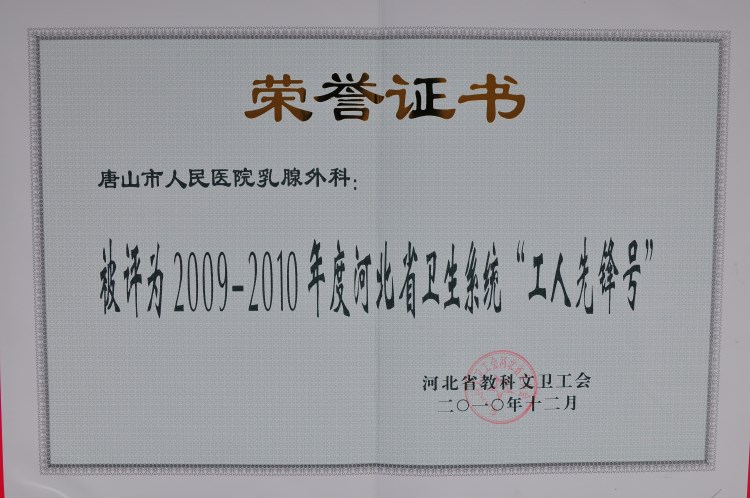 荣誉证书
唐山市人民医院乳腺外科：
被评为2009-2010年度河北省卫生系统“工人先锋号”
河北省教科文卫工会
二〇一〇年十二月